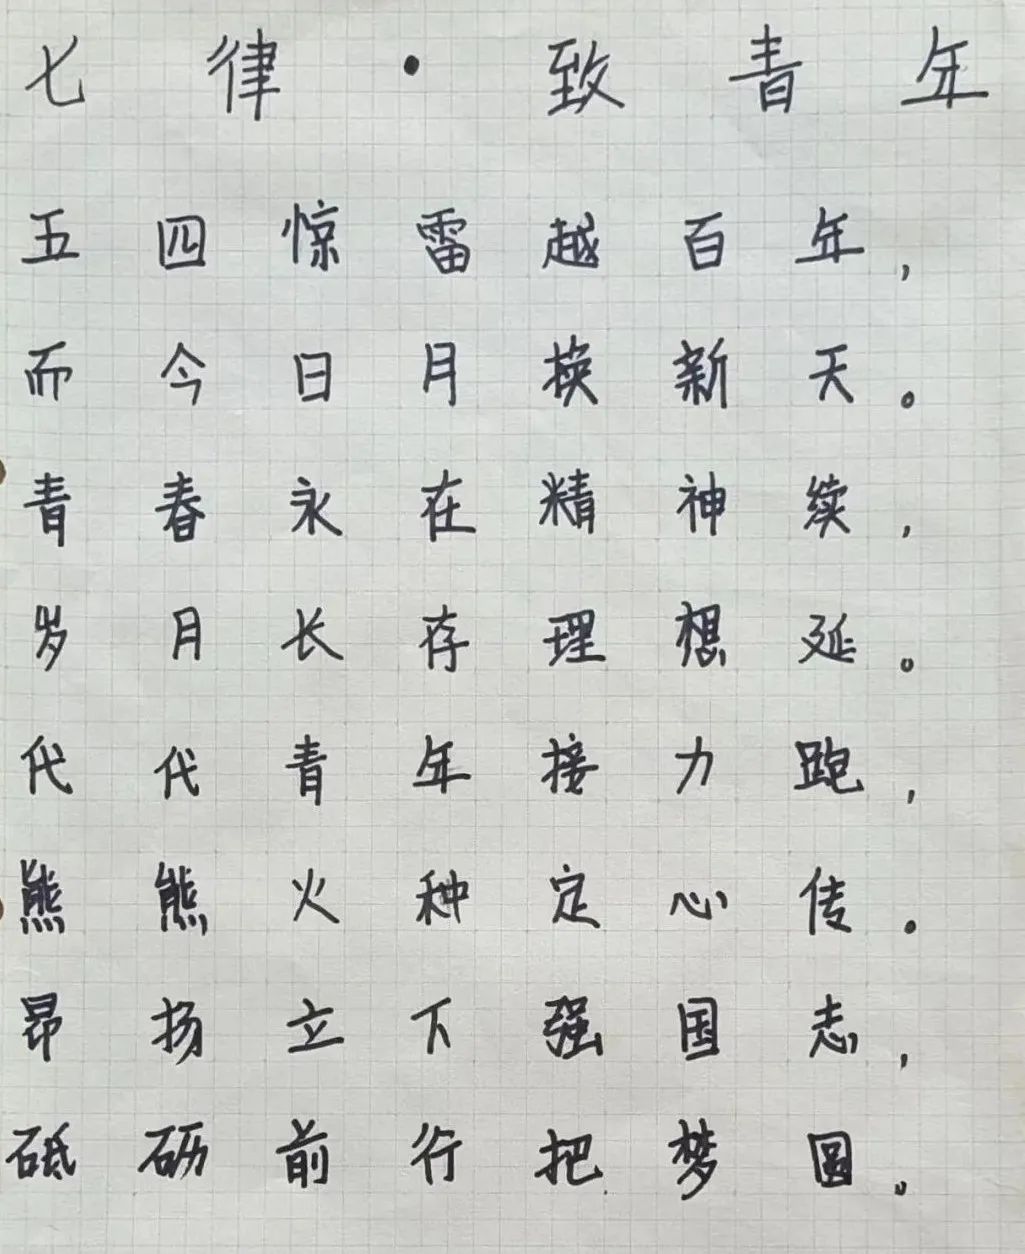 七律·致青年
五四惊雷越百年，
而今日月换新天。
青春永在精神续，
岁月长存理想延。
代代青年接力跑，
熊熊火种定心传。
昂扬立下强国志，
砥砺前行把梦圆。